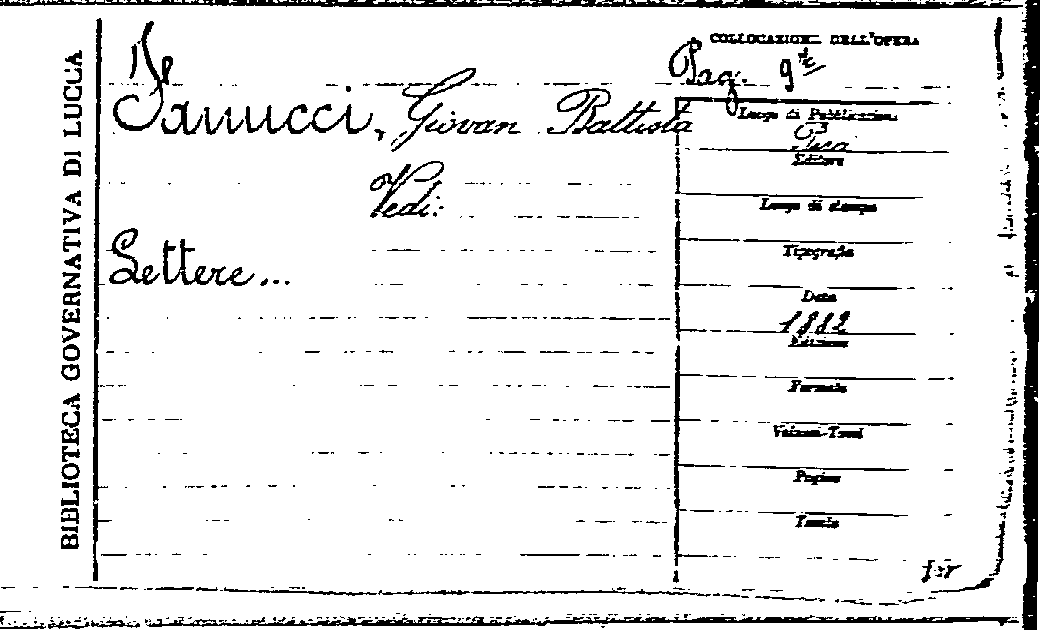 BIBLIOTECA GOVERNATIVA DI LUCCA
COLLOCAZIONE DELL'OPERA
Pag. 9
Fanucci, Giovan Battista
Vedi:
Lettere...
Luogo di Pubblicazione
Pisa
Editore
Luogo di stampa
Tipografia
Data
1882
Edizione
Formato
Volumi-Tomi
Pagine
Tavole